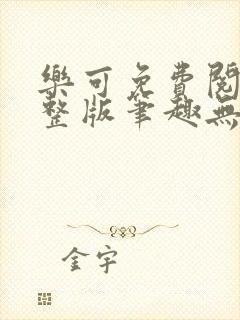 樂可免費閱
整版筆趣無
金宇